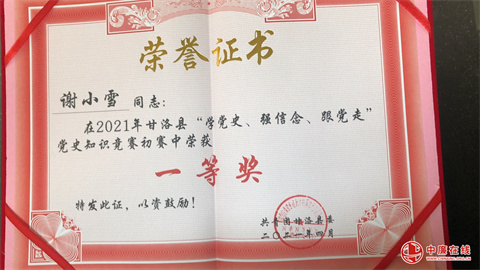 荣誉证书
谢小雪 同志:
在2021年甘洛县“学党史、强信念、跟党走”
党史知识竞赛初赛中荣获
一等奖
特发此证，以资鼓励!
共青团甘洛县委
二〇二一年四月
中廉在线